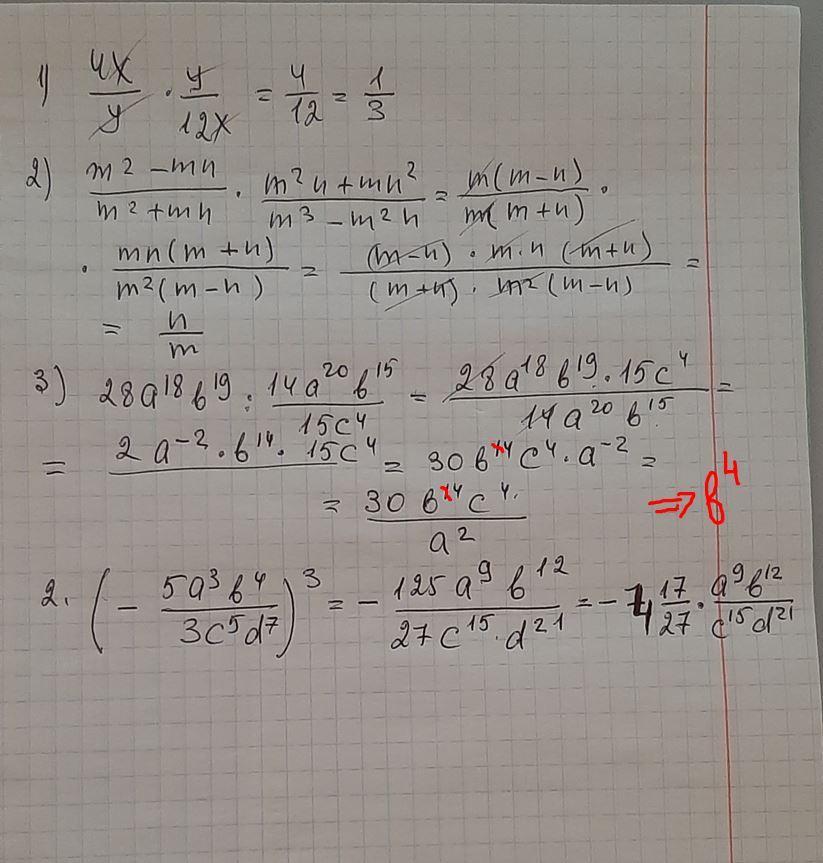 1) 4x/y · y/12x = 4/12 = 1/3
2) m² - mn / m² + mn · m²n + mn² / m³ - m²n = m(m-n) / m(m+n) ·
· mn(m+n) / m²(m-n) = (m-n) · m·n (m+n) / (m+n) · m² (m-n) =
= n/m
3) 28a¹⁸b¹⁹ : 14a²⁰b¹⁵ / 15c⁴ = 28a¹⁸b¹⁹ · 15c⁴ / 14a²⁰b¹⁵ =
= 2a⁻² · b¹⁴ · 15c⁴ = 30b¹⁴c⁴ · a⁻² =
= 30b¹⁴c⁴ / a² ⇒ b⁴
2. (- 5a³b⁴ / 3c⁵d⁷)³ = - 125a⁹b¹² / 27c¹⁵·d²¹ = -4 17/27 · a⁹b¹² / c¹⁵d²¹